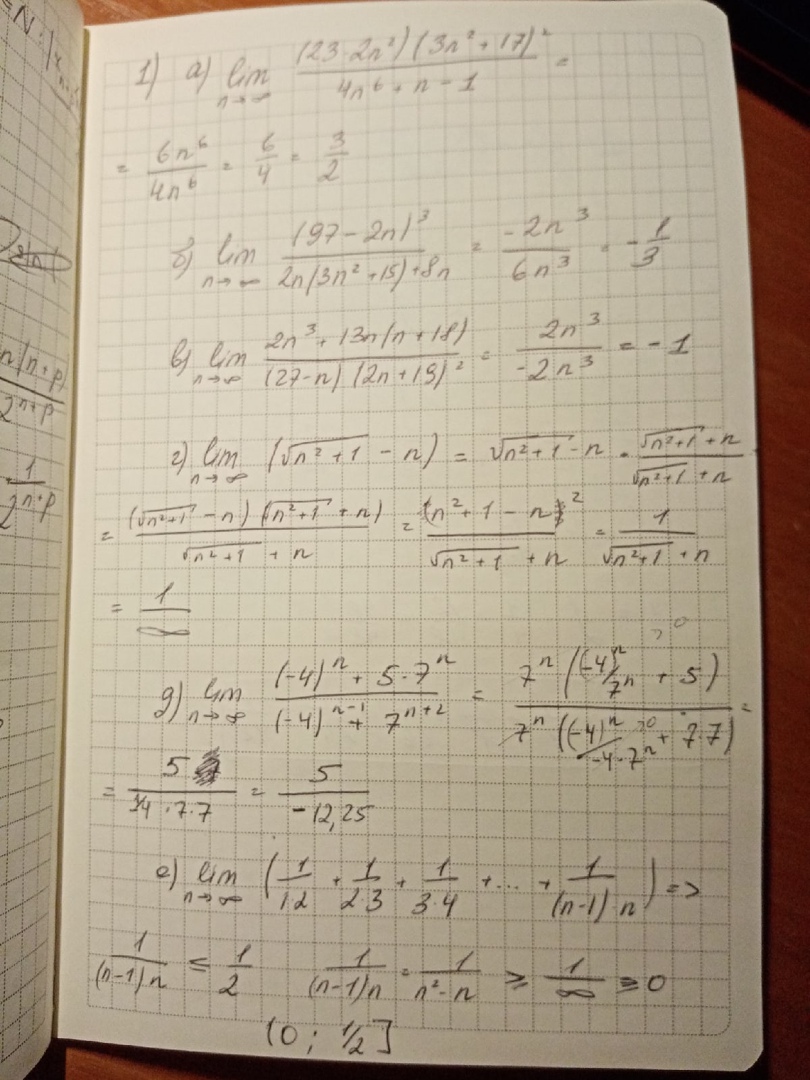 1) а) lim n→∞ (23·2n²)(3n²+17)² / 4n⁶+n−1 =
= 6n⁶/4n⁶ = 6/4 = 3/2
б) lim n→∞ (97−2n)³ / 2n(3n²+15)+8n = −2n³/6n³ = −1/3
в) lim n→∞ 2n³+13n(n+18) / (27−n)(2n+19)² = 2n³/−2n³ = −1
г) lim n→∞ (√n²+1 − n) = √n²+1 − n · √n²+1 + n / √n²+1 + n
= (√n²+1 − n)(√n²+1 + n) / √n²+1 + n = (n²+1−n)² / √n²+1 + n = 1 / √n²+1 + n
= 1/∞
д) lim n→∞ (−4)ⁿ + 5·7ⁿ / (−4)ⁿ⁻¹ + 7ⁿ⁺² = 7ⁿ((−4)ⁿ/7ⁿ + 5) / 7ⁿ((−4)ⁿ/−4·7ⁿ + 7·7) =
= 5 / ·7·7 = 5 / −12,25
е) lim n→∞ (1/1·2 + 1/2·3 + 1/3·4 + ... + 1/(n−1)·n) =>
1/(n−1)n ≤ 1/2 1/(n−1)n = 1/n²−n ≥ 1/∞ = 0
(0; 1/2]